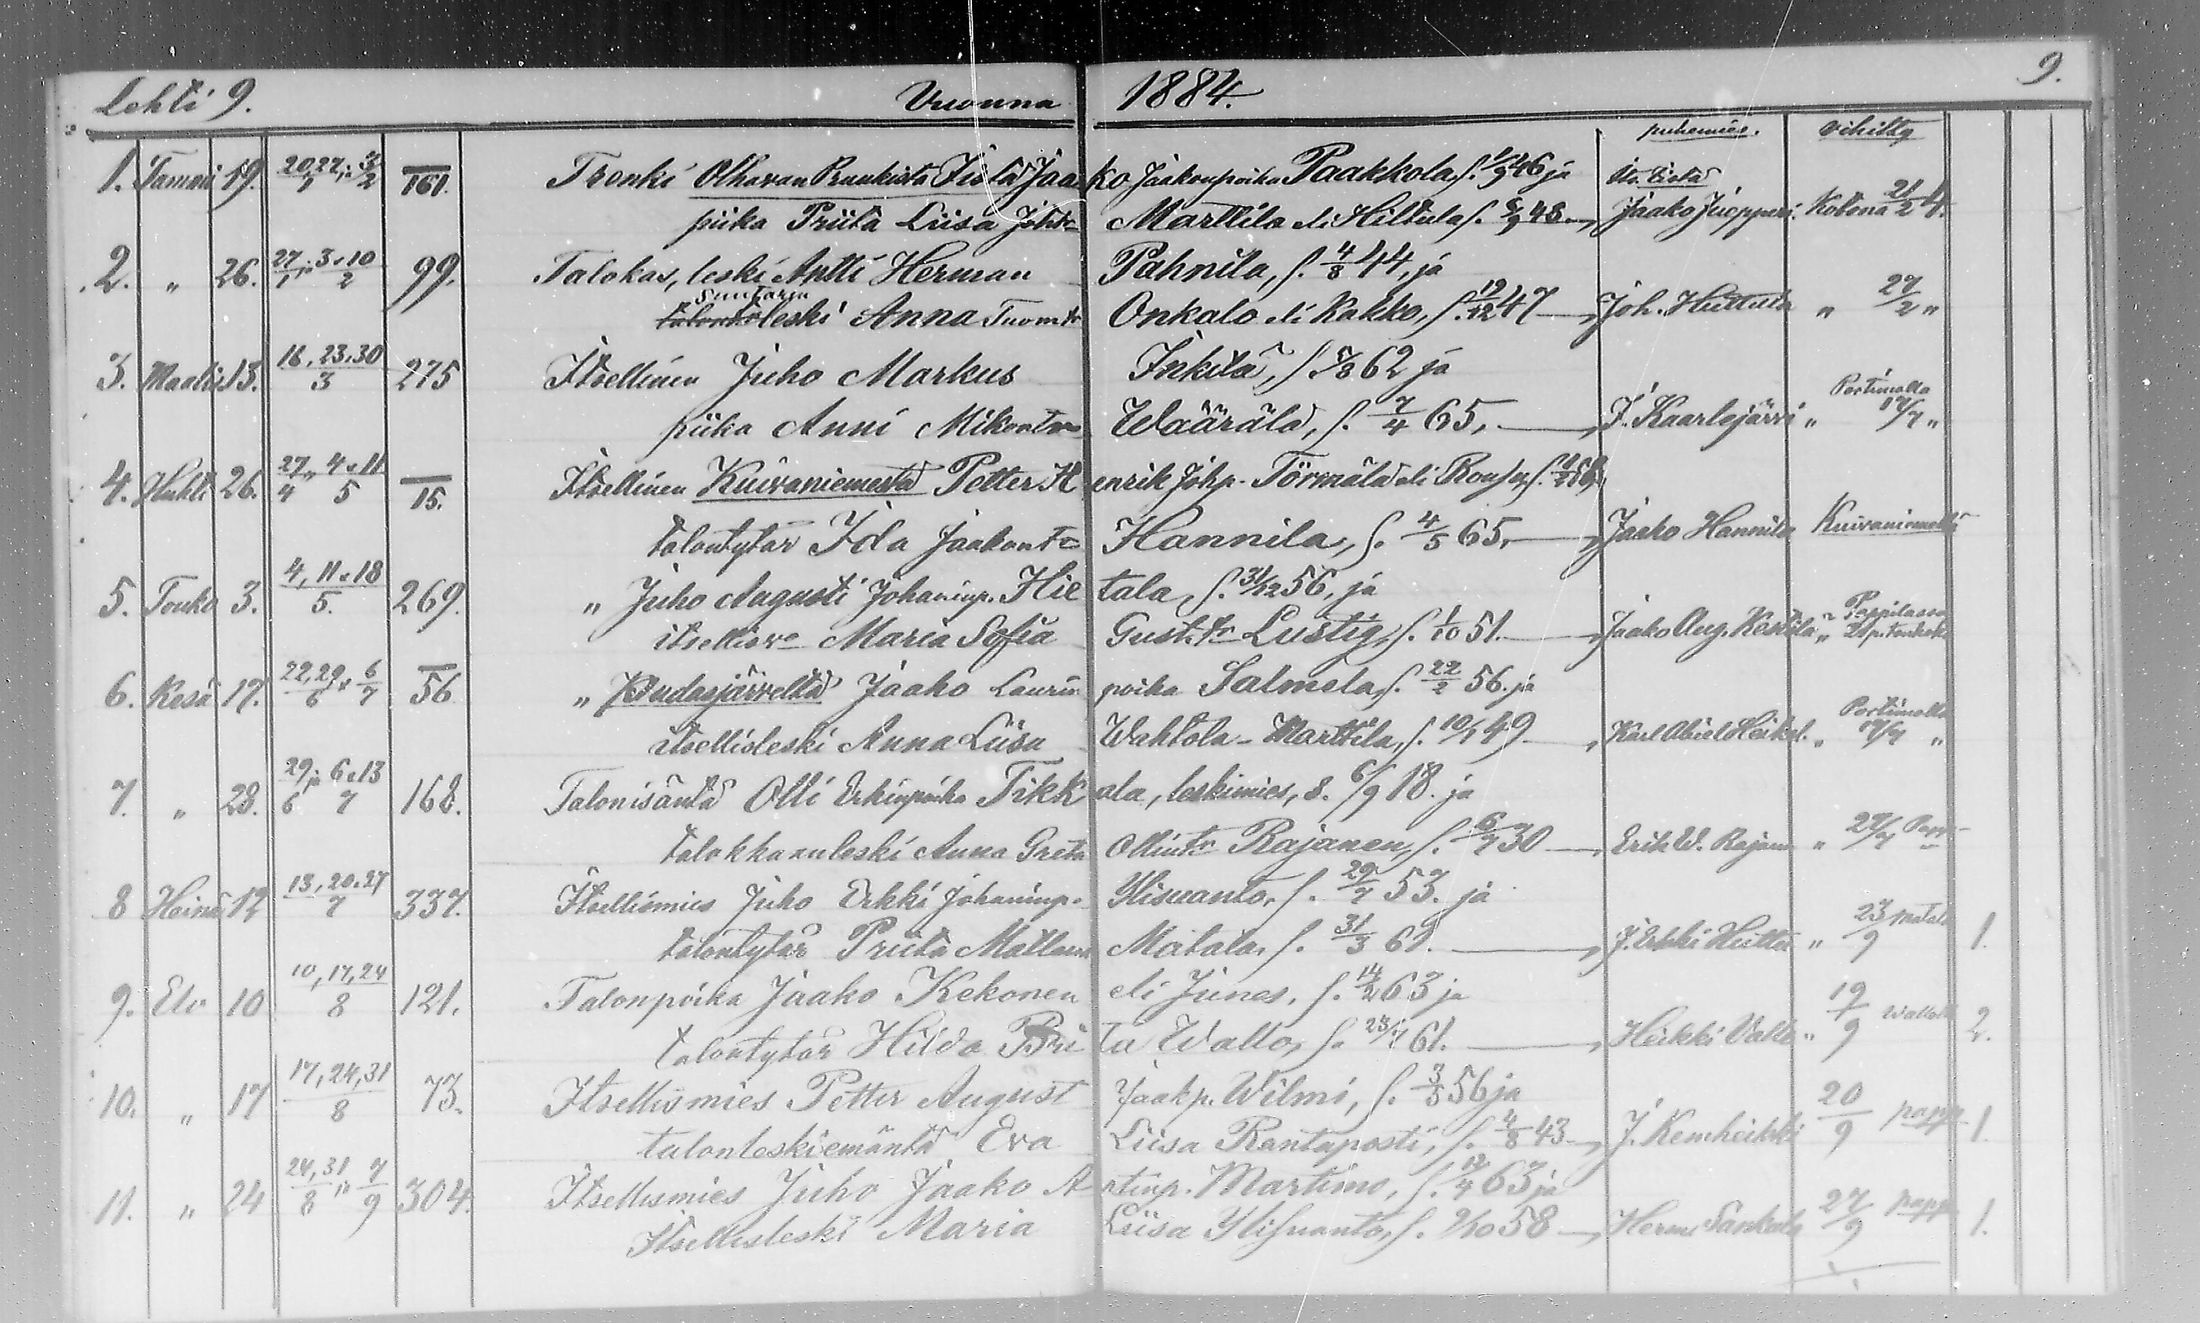 Lehti 9. Vuonna 1884. 9.
puhemies. vihitty
1. Tammi 19. 20,27 /1 ja 3/2 161. Trenki Olhavan Jaakko Jaakonpoika Paakkola, s. 46 ja
piika Priita Liisa Marttila eli Hiltula s. 48. Jaako 4.
2. " 26. 27/1 ja 3 a 10/2 99. Talokas, leski Antti Herman Pahnila, s. 4/8 44, ja
leski Anna Tuomtr Onkalo eli Kakko, s. 19/12 47 Joh. Huttula " 27/2 "
3. Maalis 13. 16, 23, 30/3 275 Itsellinen Juho Markus Inkilä, s. 62 ja
piika Anni Mikontr Wääräla, s. 7/4 65, J. Kaarlejärvi " Portimolla "
4. Huhti 26. 27/4 4 a 11/5 15. Itsellinen Kuivaniemestä Petter Henrik Johp. Törmälä eli
talontytär Ida Jaakontr Hannila, s. 4/5 65, Jaako Hannila Kuivaniemellä
5. Touko 3. 4, 11 a 18/5. 269. " Juho Augusti Johaninp. Hietala, s. 31/12 56, ja
Maria Sofia Gust.tr Lustig, s. 1/10 51. Jaako Aug. Pappilassa
6. Kesä 17. 22,29/6 a 6/7 56 " Pudasjärveltä Jaako Laurinpoika Salmela s. 22/2 56. ja
itsellisleski Anna Liisa Wahtola-Marttila, s. 49 Karl Abiel Heikel. " Portimolla "
7. " 28. 29/6 ja 6 a 13/7 168. Talonisäntä Olli Erkinpoika Tikkala, leskimies, s. 6/9 18. ja
talokkaanleski Anna Greta Ollintr Rajanen, s. 6/7 30 Erik W. Rajan "
8 Heinä 12 13, 20, 27/7 337. Itsellismies Juho Erkki Johaninp. Ylisuanto, s. 29/7 53. ja
talontytär Priita Matala, s. 31/3 61. J. Erkki " 23/9 Matala 1.
9. Elo 10 10, 17, 24/8 121. Talonpoika Jaako Kekonen eli Junes, s. 14/2 63 ja
talontytär Hilda Priita Wallo, s. 61. Heikki Vallo " 19/9 2.
10. " 17 17, 24, 31/8 73. Itsellismies Petter August Jaakp. Wilmi, s. 3/8 56 ja
talonleskiemäntä Eva Liisa Rantaposti, s. 4/8 43 J. 20/9 papp. 1
11. " 24 24, 31/8 ja 7/9 304. Itsellismies Juho Jaako Martimo, s. 63 ja
Itsellisleski Maria Liisa Ylisuanto, s. 58 Herm. 27/9 papp. 1.